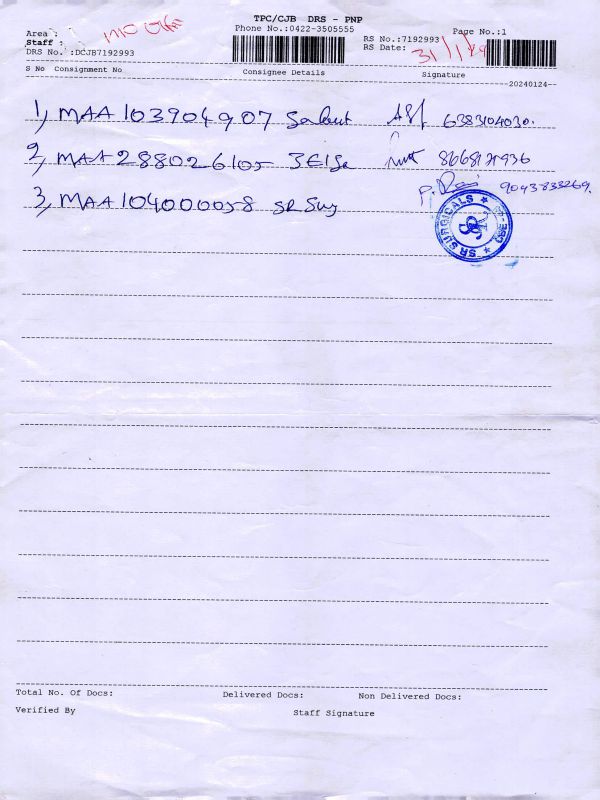 TPC/CJB DRS - PNP
Phone No.:0422-3505555
Page No.:1
Area :
RS No.:7192993
Staff :
RS Date: 31/1/24
DRS No. :DCJB7192993
S No Consignment No Consignee Details Signature
--20240124--
1, MAA 103904907 6383104030.
2, MAA 288026105
3, MAA 104000058 SR Sug 9043838269.
SR SURGICALS ★ CBE ★
SR
Total No. Of Docs: Delivered Docs: Non Delivered Docs:
Verified By Staff Signature